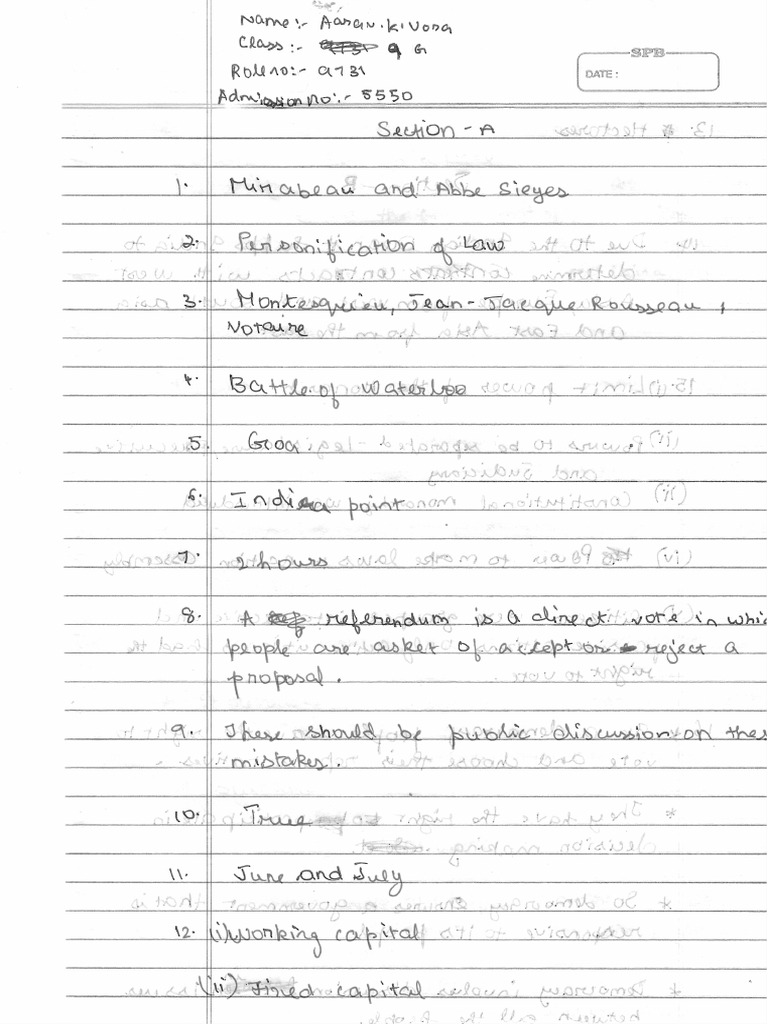 Name:- Aarav.K.Vora
Class:- 9 G
SPB
Roll no:- 9731
DATE :
Admission no:- 5550
Section - A
1. Mirabeau and Abbe Sieyes
2. Personification of Law
3. Montesquieu, Jean-Jacque Rousseau,
Votaire
4. Battle of Waterloo
5. Goa
6. Indira point
7. 2 hours
8. A referendum is a direct vote in whic
people are asket of accept or reject a
proposal.
9. There should be public discussion on thes
mistakes.
10. True
11. June and July
12. (i) Working capital
(ii) Fixed capital